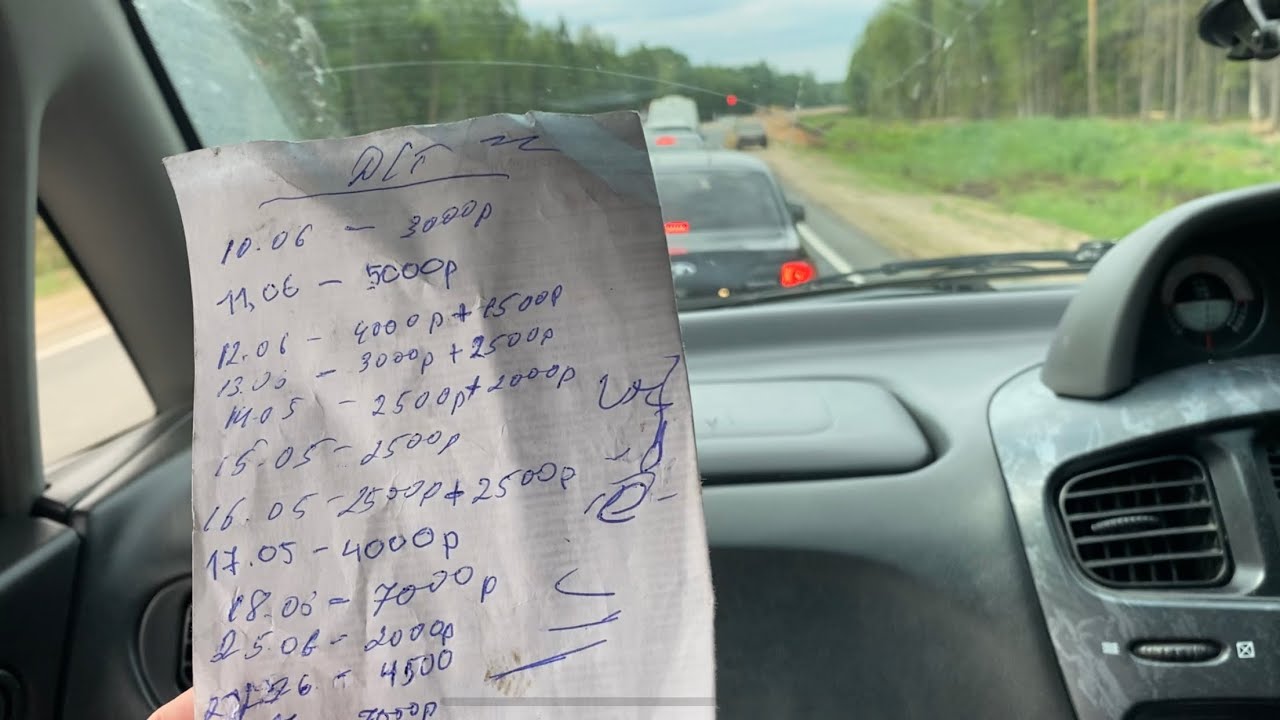 ДСТ
10.06 - 3000р
11.06 - 5000р
12.06 - 4000р + 1500р
13.06 - 3000р + 2500р
14.05 - 2500р + 2000р
15.05 - 2500р
16.05 - 2500р + 2500р
17.05 - 4000р
18.06 - 7000р
25.06 - 2000р
- 4500